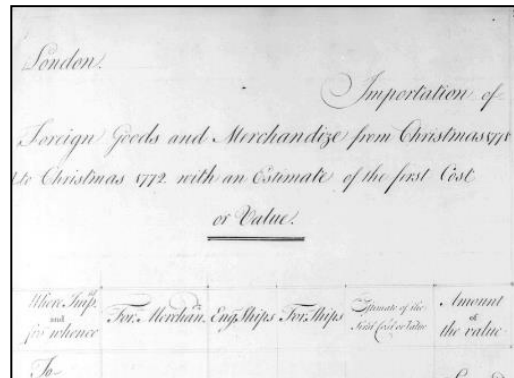 London.
Importation of
Foreign Goods and Merchandize from Christmas 1771
to Christmas 1772 with an Estimate of the first Cost
or Value.
Where Imp.d and for whence
For. Merchan. Eng. Ships For. Ships
Estimate of the First Cost or Value
Amount of the value
To